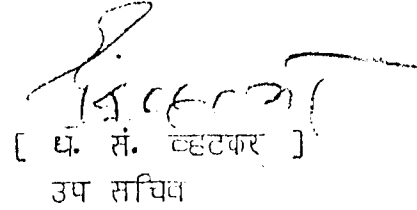 [ ध. सं. व्हटकर ]
उप सचिव